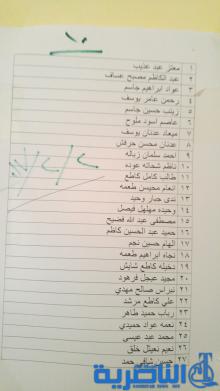 ١٠
١ معتز عبد عذيب
٢ عبد الكاظم مصبح عساف
٣ عواد ابراهيم جاسم
٤ رحمن عامر يوسف
٥ زينب حسين جاسم
٦ عاصم اسود ملوح
٧ ميعاد عدنان يوسف
٨ عدنان محسن حرفش
٩ احمد سلمان زباله
١٠ ناظم شحاته عوده
١١ طالب كامل كاطع
١٢ انعام محيسن طعمه
١٣ ندى جبار وحيد
١٤ وحيده مهلهل فيصل
١٥ مصطفى عبد الله فضيح
١٦ حميد عبد الحسين كاظم
١٧ الهام حسين نجم
١٨ نجاه ابراهيم طعمه
١٩ دخيله كاطع شايش
٢٠ مجيد عجيل فرهود
٢١ نبراس صالح مهدي
٢٢ علي كاطع مرشد
٢٣ رباب حميد طاهر
٢٤ نعمه عواد حميدي
٢٥ محمد عبد عيسى
٢٦ نعيم نعيثل خلق
٢٧ حسين شافي حمد
الناصرية